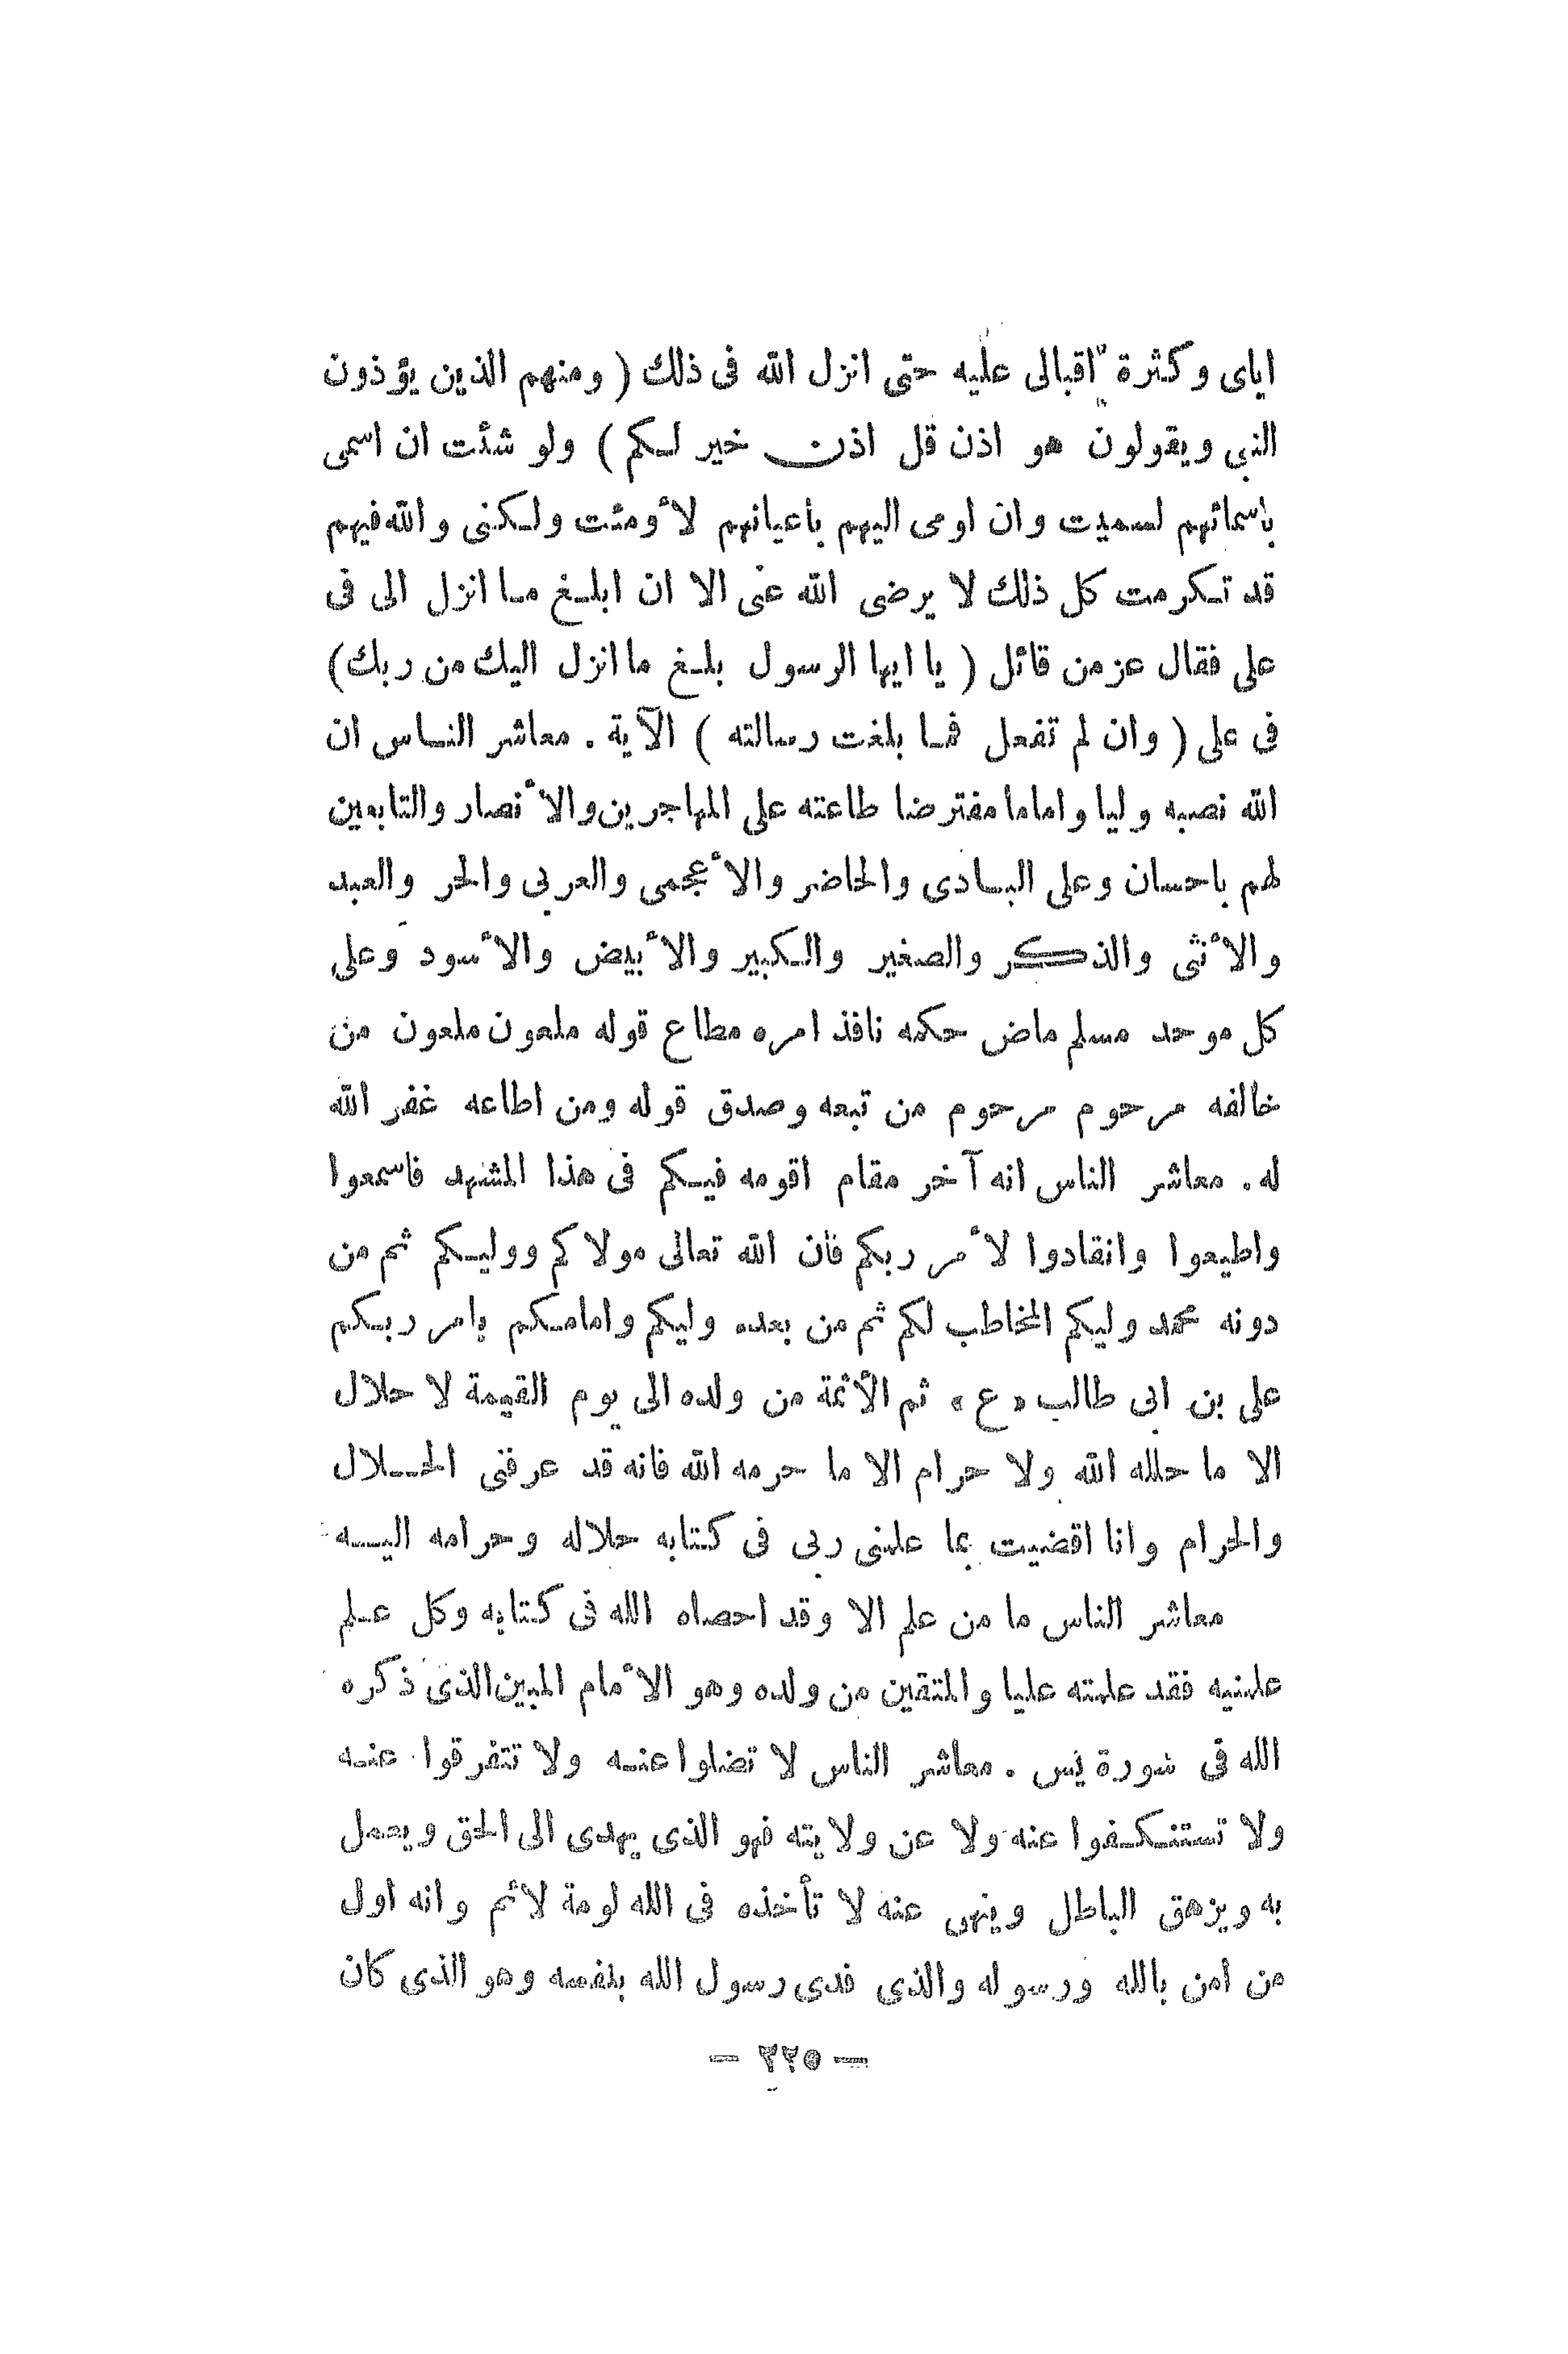 اياى وكثرة اقبالى عليه حتى انزل الله فى ذلك ( ومنهم الذين يؤذون
النبى ويقولون هو اذن قل اذن خير لكم ) ولو شئت ان اسمى
باسمائهم لسميت وان اومى اليهم باعيانهم لأومئت ولكنى والله فيهم
قد تكرمت كل ذلك لا يرضى الله عنى الا ان ابلغ ما انزل الى فى
على فقال عز من قائل ( يا ايها الرسول بلغ ما انزل اليك من ربك)
فى على ( وان لم تفعل فما بلغت رسالته ) الآية . معاشر الناس ان
الله نصبه وليا واماما مفترضا طاعته على المهاجرين والأنصار والتابعين
لهم باحسان وعلى البادى والحاضر والأعجمى والعربى والحر والعبد
والأنثى والذكر والصغير والكبير والأبيض والأسود وعلى
كل موحد مسلم ماض حكمه نافذ امره مطاع قوله ملعون ملعون من
خالفه مرحوم مرحوم من تبعه وصدق قوله ومن اطاعه غفر الله
له . معاشر الناس انه آخر مقام اقومه فيكم فى هذا المشهد فاسمعوا
واطيعوا وانقادوا لأمر ربكم فان الله تعالى مولاكم ووليكم ثم من
دونه محمد وليكم المخاطب لكم ثم من بعده وليكم وامامكم بامر ربكم
على بن ابى طالب «ع» ثم الأئمة من ولده الى يوم القيمة لا حلال
الا ما حلله الله ولا حرام الا ما حرمه الله فانه قد عرفنى الحلال
والحرام وانا اقضيت بما علمنى ربى فى كتابه حلاله وحرامه اليه
معاشر الناس ما من علم الا وقد احصاه الله فى كتابه وكل علم
علمنيه فقد علمته عليا والمتقين من ولده وهو الأمام المبين الذى ذكره
الله فى سورة يس . معاشر الناس لا تضلوا عنه ولا تتفرقوا عنه
ولا تستنكفوا عنه ولا عن ولايته فهو الذى يهدى الى الحق ويعمل
به ويزهق الباطل وينهى عنه لا تأخذه فى الله لومة لائم وانه اول
من امن بالله ورسوله والذى فدى رسول الله بنفسه وهو الذى كان
— ٢٢٥ —